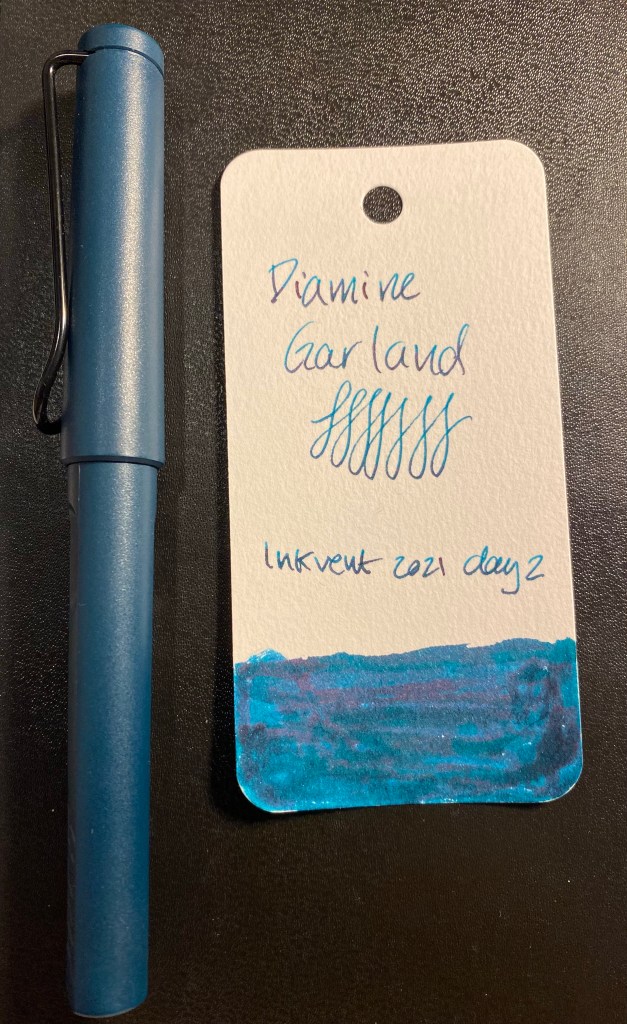 Diamine
Garland
Inkvent 2021 day 2